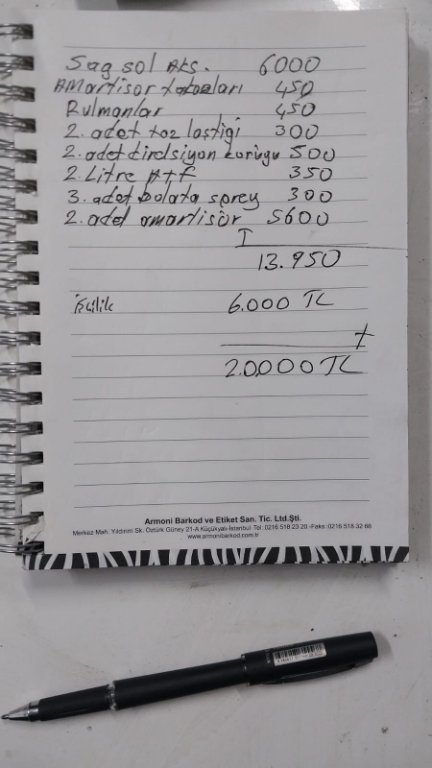 Sag sol Aks. 6000
AMartisör takozları 450
Rulmanlar 450
2. adet toz lastigi 300
2. adet direksiyon körügü 500
2. Litre Atf 350
3. adet balata sprey 300
2. adet amartisör 5600
13.950
işcilik 6.000 TL
+
20.000 TL
Armoni Barkod ve Etiket San. Tic. Ltd.Şti.
Merkez Mah. Yıldırım Sk. Öztürk Güney 21-A Küçükyalı-İstanbul Tel: 0216 518 23 20 -Faks :0216 518 32 66
www.armonibarkod.com.tr